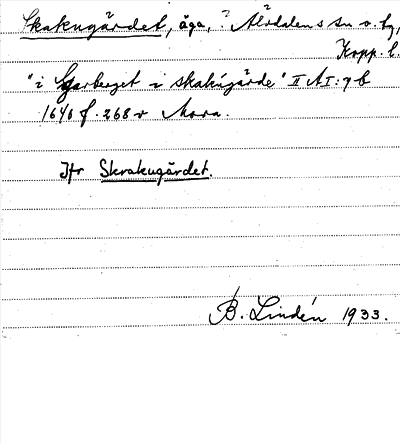 Skakugärdet, äga, ? Älvdalens sn o. tg,
Kopp. l.
"i Garberget i skakúgärde" II A I: 7 b
1640 f. 268 v Mora.
Jfr Skrakugärdet.
B. Lindén 1933.